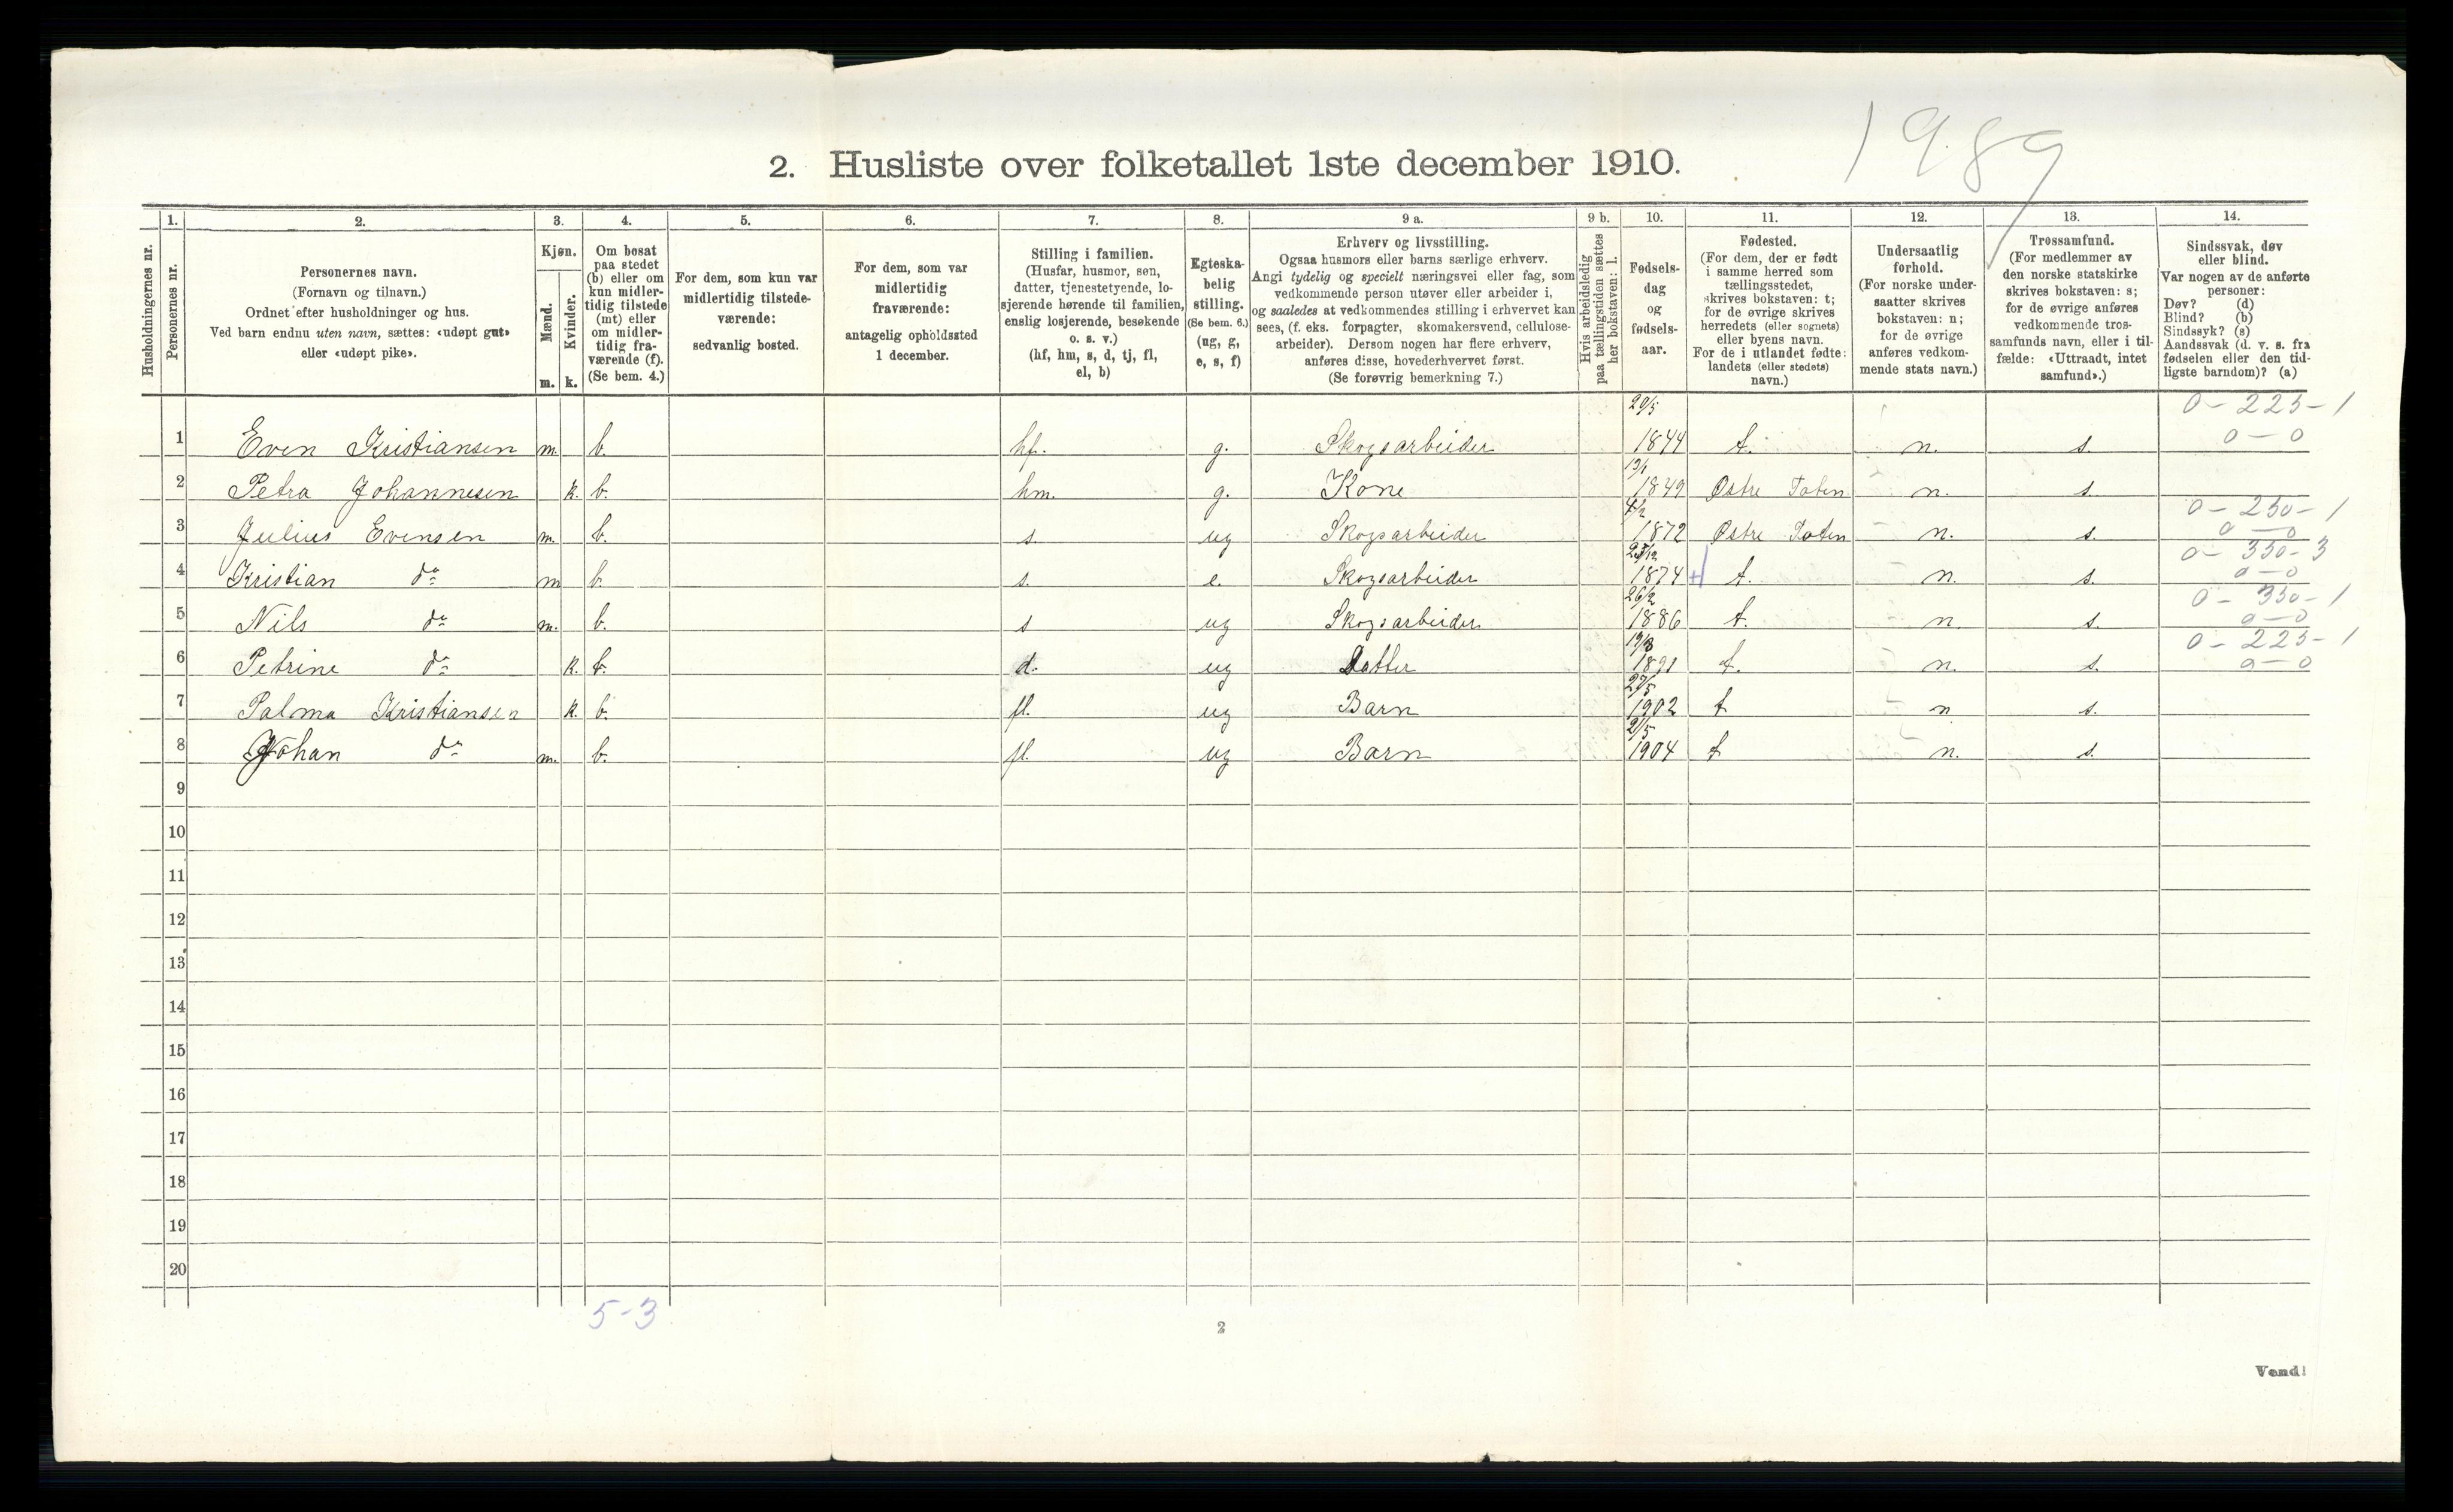 1989
2. Husliste over folketallet 1ste december 1910.
Husholdningernes nr.
1.
Personernes nr.
2.
Personernes navn.
(Fornavn og tilnavn.)
Ordnet efter husholdninger og hus.
Ved barn endnu uten navn, sættes: «udøpt gut»
eller «udøpt pike».
3.
Kjøn.
Mænd.
m.
Kvinder.
k.
4.
Om bosat
paa stedet
(b) eller om
kun midler-
tidig tilstede
(mt) eller
om midler-
tidig fra-
værende (f).
(Se bem. 4.)
5.
For dem, som kun var
midlertidig tilstede-
værende:
sedvanlig bosted.
6.
For dem, som var
midlertidig
fraværende:
antagelig opholdssted
1 december.
7.
Stilling i familien.
(Husfar, husmor, søn,
datter, tjenestetyende, lo-
sjerende hørende til familien,
enslig losjerende, besøkende
o. s. v.)
(hf, hm, s, d, tj, fl,
el, b)
8.
Egteska-
belig
stilling.
(Se bem. 6.)
(ug, g,
e, s, f)
9 a.
Erhverv og livsstilling.
Ogsaa husmors eller barns særlige erhverv.
Angi tydelig og specielt næringsvei eller fag, som
vedkommende person utøver eller arbeider i,
og saaledes at vedkommendes stilling i erhvervet kan
sees, (f. eks. forpagter, skomakersvend, cellulose-
arbeider). Dersom nogen har flere erhverv,
anføres disse, hovederhvervet først.
(Se forøvrig bemerkning 7.)
9 b.
Hvis arbeidsledig
paa tællingstiden sættes
her bokstaven: l.
10.
Fødsels-
dag
og
fødsels-
aar.
11.
Fødested.
(For dem, der er født
i samme herred som
tællingsstedet,
skrives bokstaven: t;
for de øvrige skrives
herredets (eller sognets)
eller byens navn.
For de i utlandet fødte:
landets (eller stedets)
navn.)
12.
Undersaatlig
forhold.
(For norske under-
saatter skrives
bokstaven: n;
for de øvrige
anføres vedkom-
mende stats navn.)
13.
Trossamfund.
(For medlemmer av
den norske statskirke
skrives bokstaven: s;
for de øvrige anføres
vedkommende tros-
samfunds navn, eller i til-
fælde: «Uttraadt, intet
samfund».)
14.
Sindssvak, døv
eller blind.
Var nogen av de anførte
personer:
Døv? (d)
Blind? (b)
Sindssyk? (s)
Aandssvak (d. v. s. fra
fødselen eller den tid-
ligste barndom)? (a)
29/5 0 - 225 - 1
1 Even Kristiansen m. b. hf. g. Skogsarbeider 1844 t. n. s. 0 - 0
2 Petra Johannesen k. b. hm. g. Kone 1849 Østre Toten n. s.
4/2 0 - 250 - 1
3 Julius Evensen m. b. s. ug Skogsarbeider 1872 Østre Toten n. s. 0 - 0
0 - 350 - 3
4 Kristian do m b. s. e. Skogsarbeider 1874 + t. n. s. 0 - 0
26/2 0 - 350 - 1
5 Nils do m. b. s ug Skogsarbeider 1886 t. n. s. 0 - 0
0 - 225 - 1
6 Petrine do k. b. d. ug Datter 1891 t. n. s. 0 - 0
27/5
7 Palma Kristiansen k. b. fl. ug Barn 1902 t n s.
2/5
8 Johan do m. b. fl. ug Barn 1904 t n. s.
9
10
11
12
13
14
15
16
17
18
19
20
5-3
2
Vend!